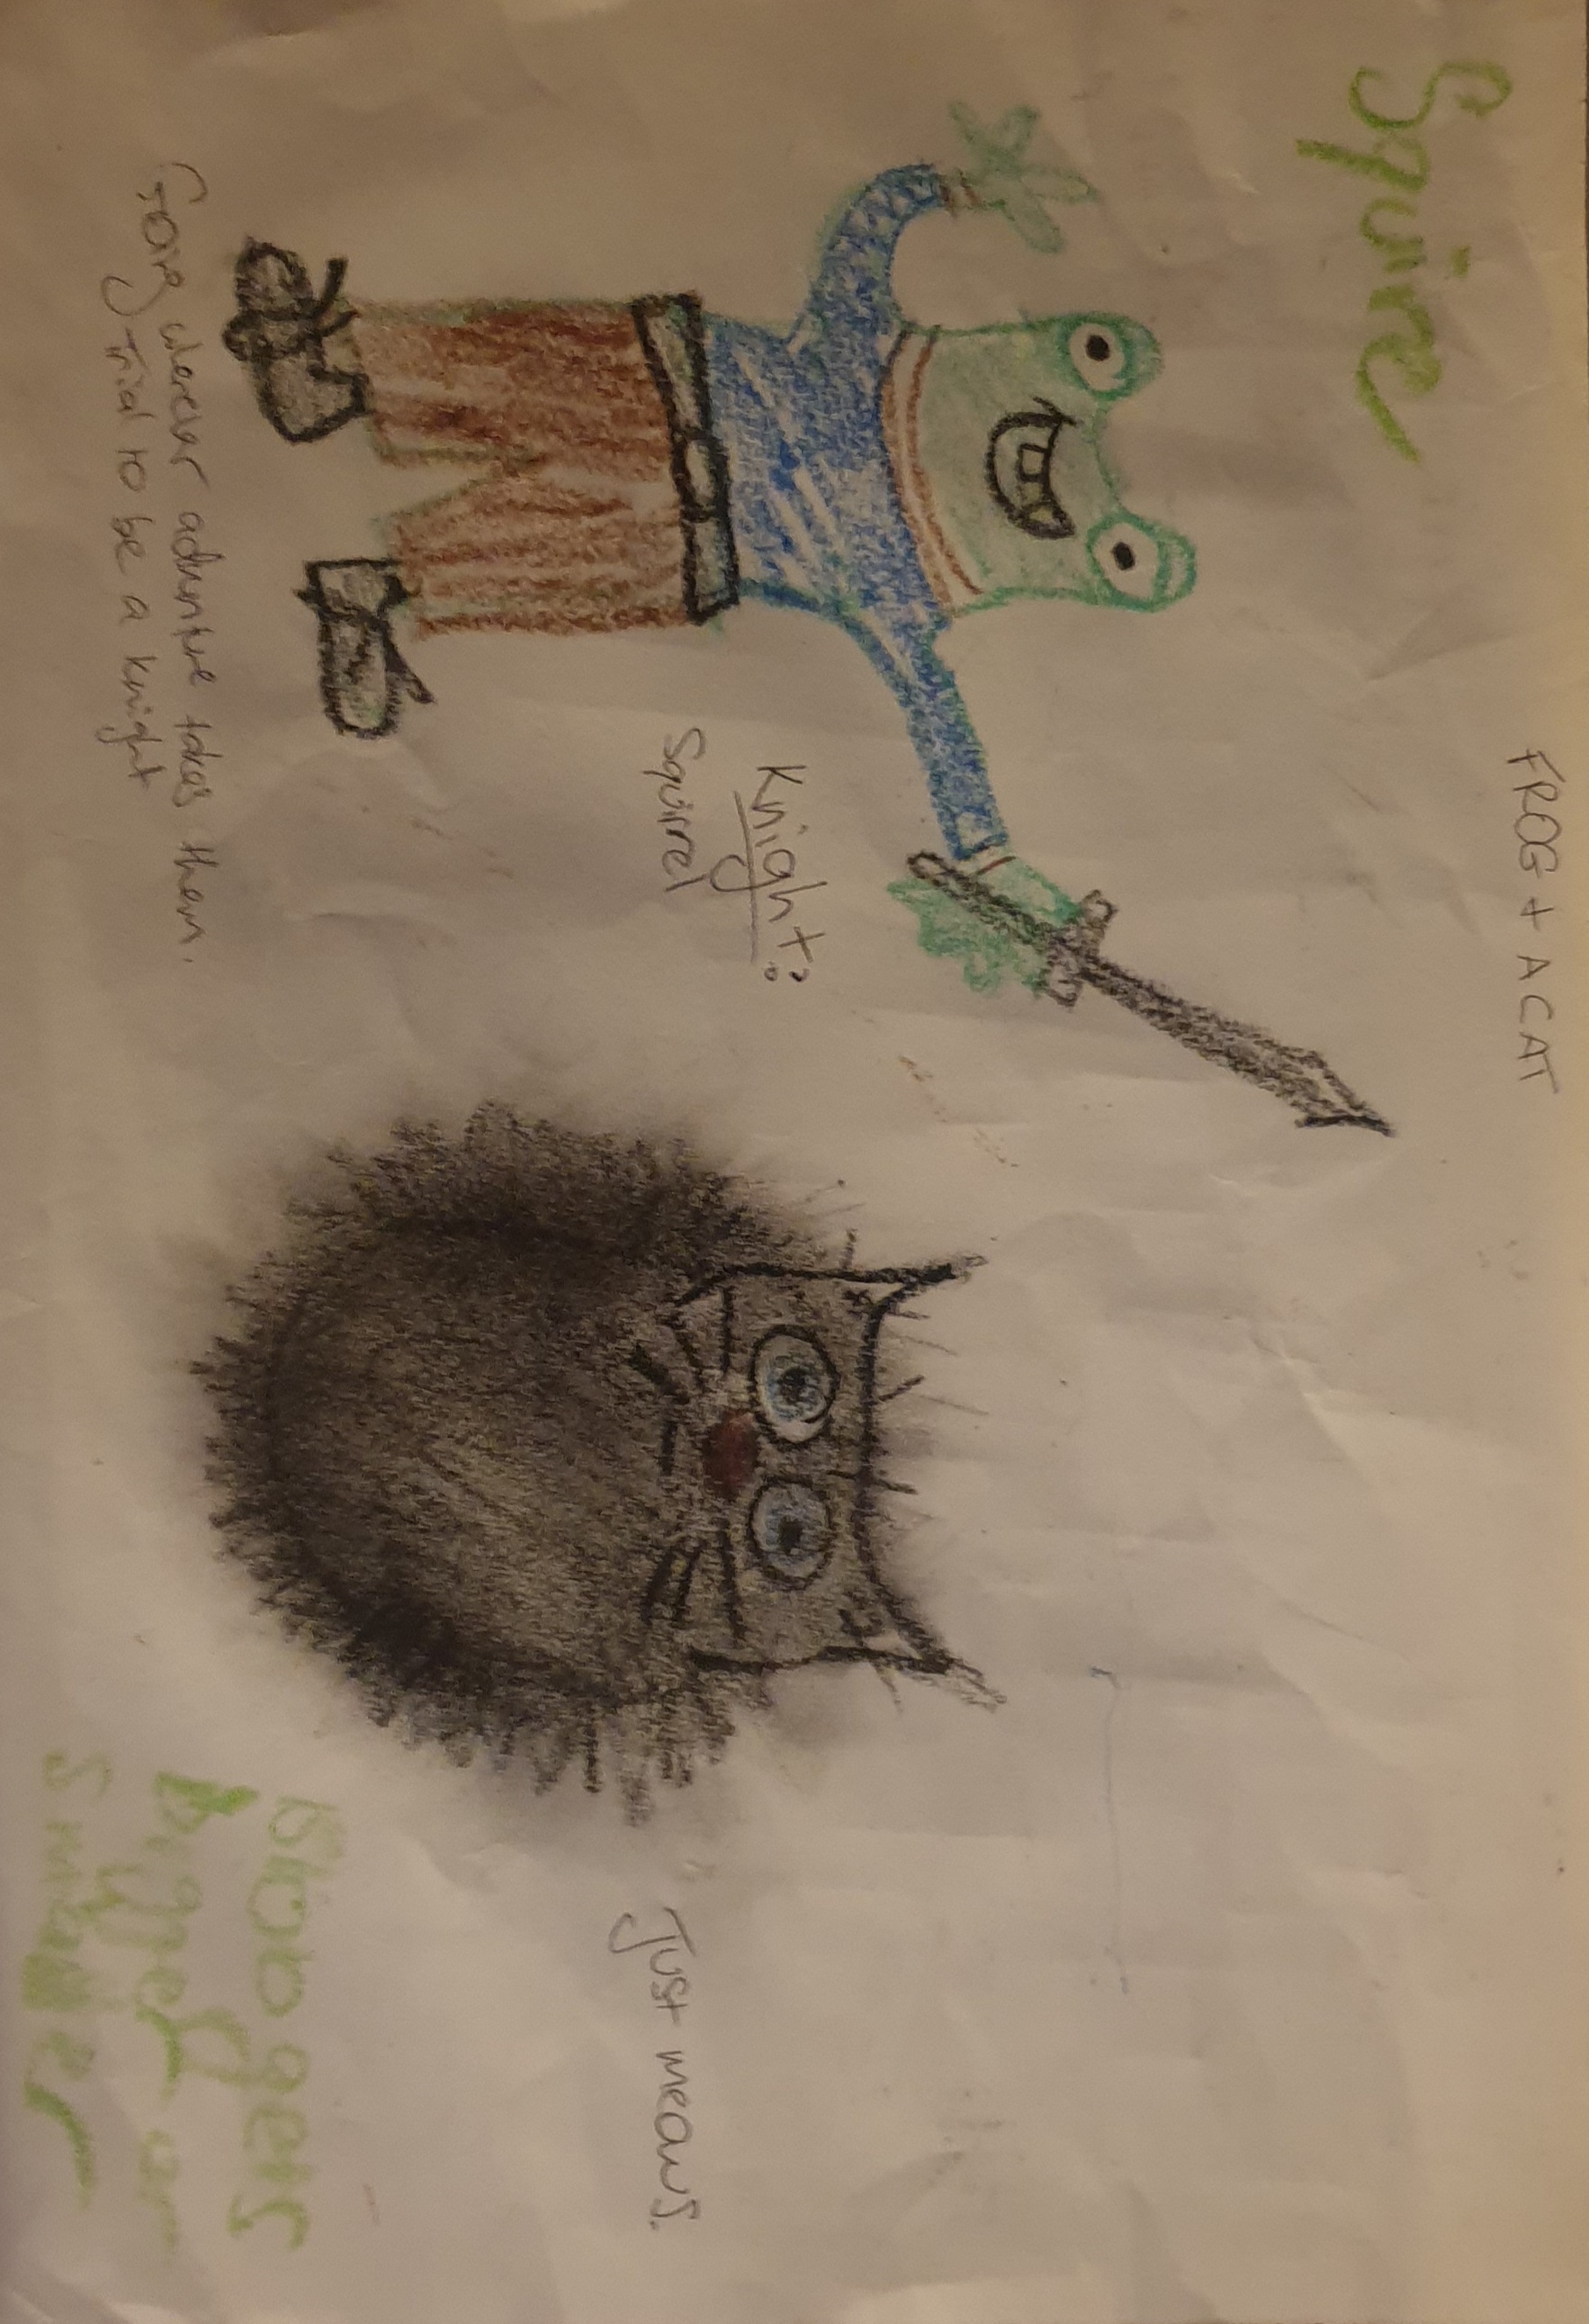 FROG + A CAT
Squire
Knight:
Squirrel
Just meows.
Going wherever adventure takes them.
Trial to be a knight
gets
Bigger or
Smaller